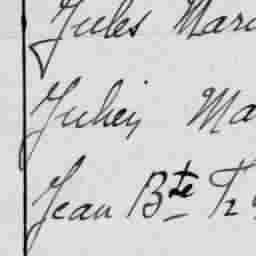 Jules Mari
Julien Ma
Jean Bte Fr